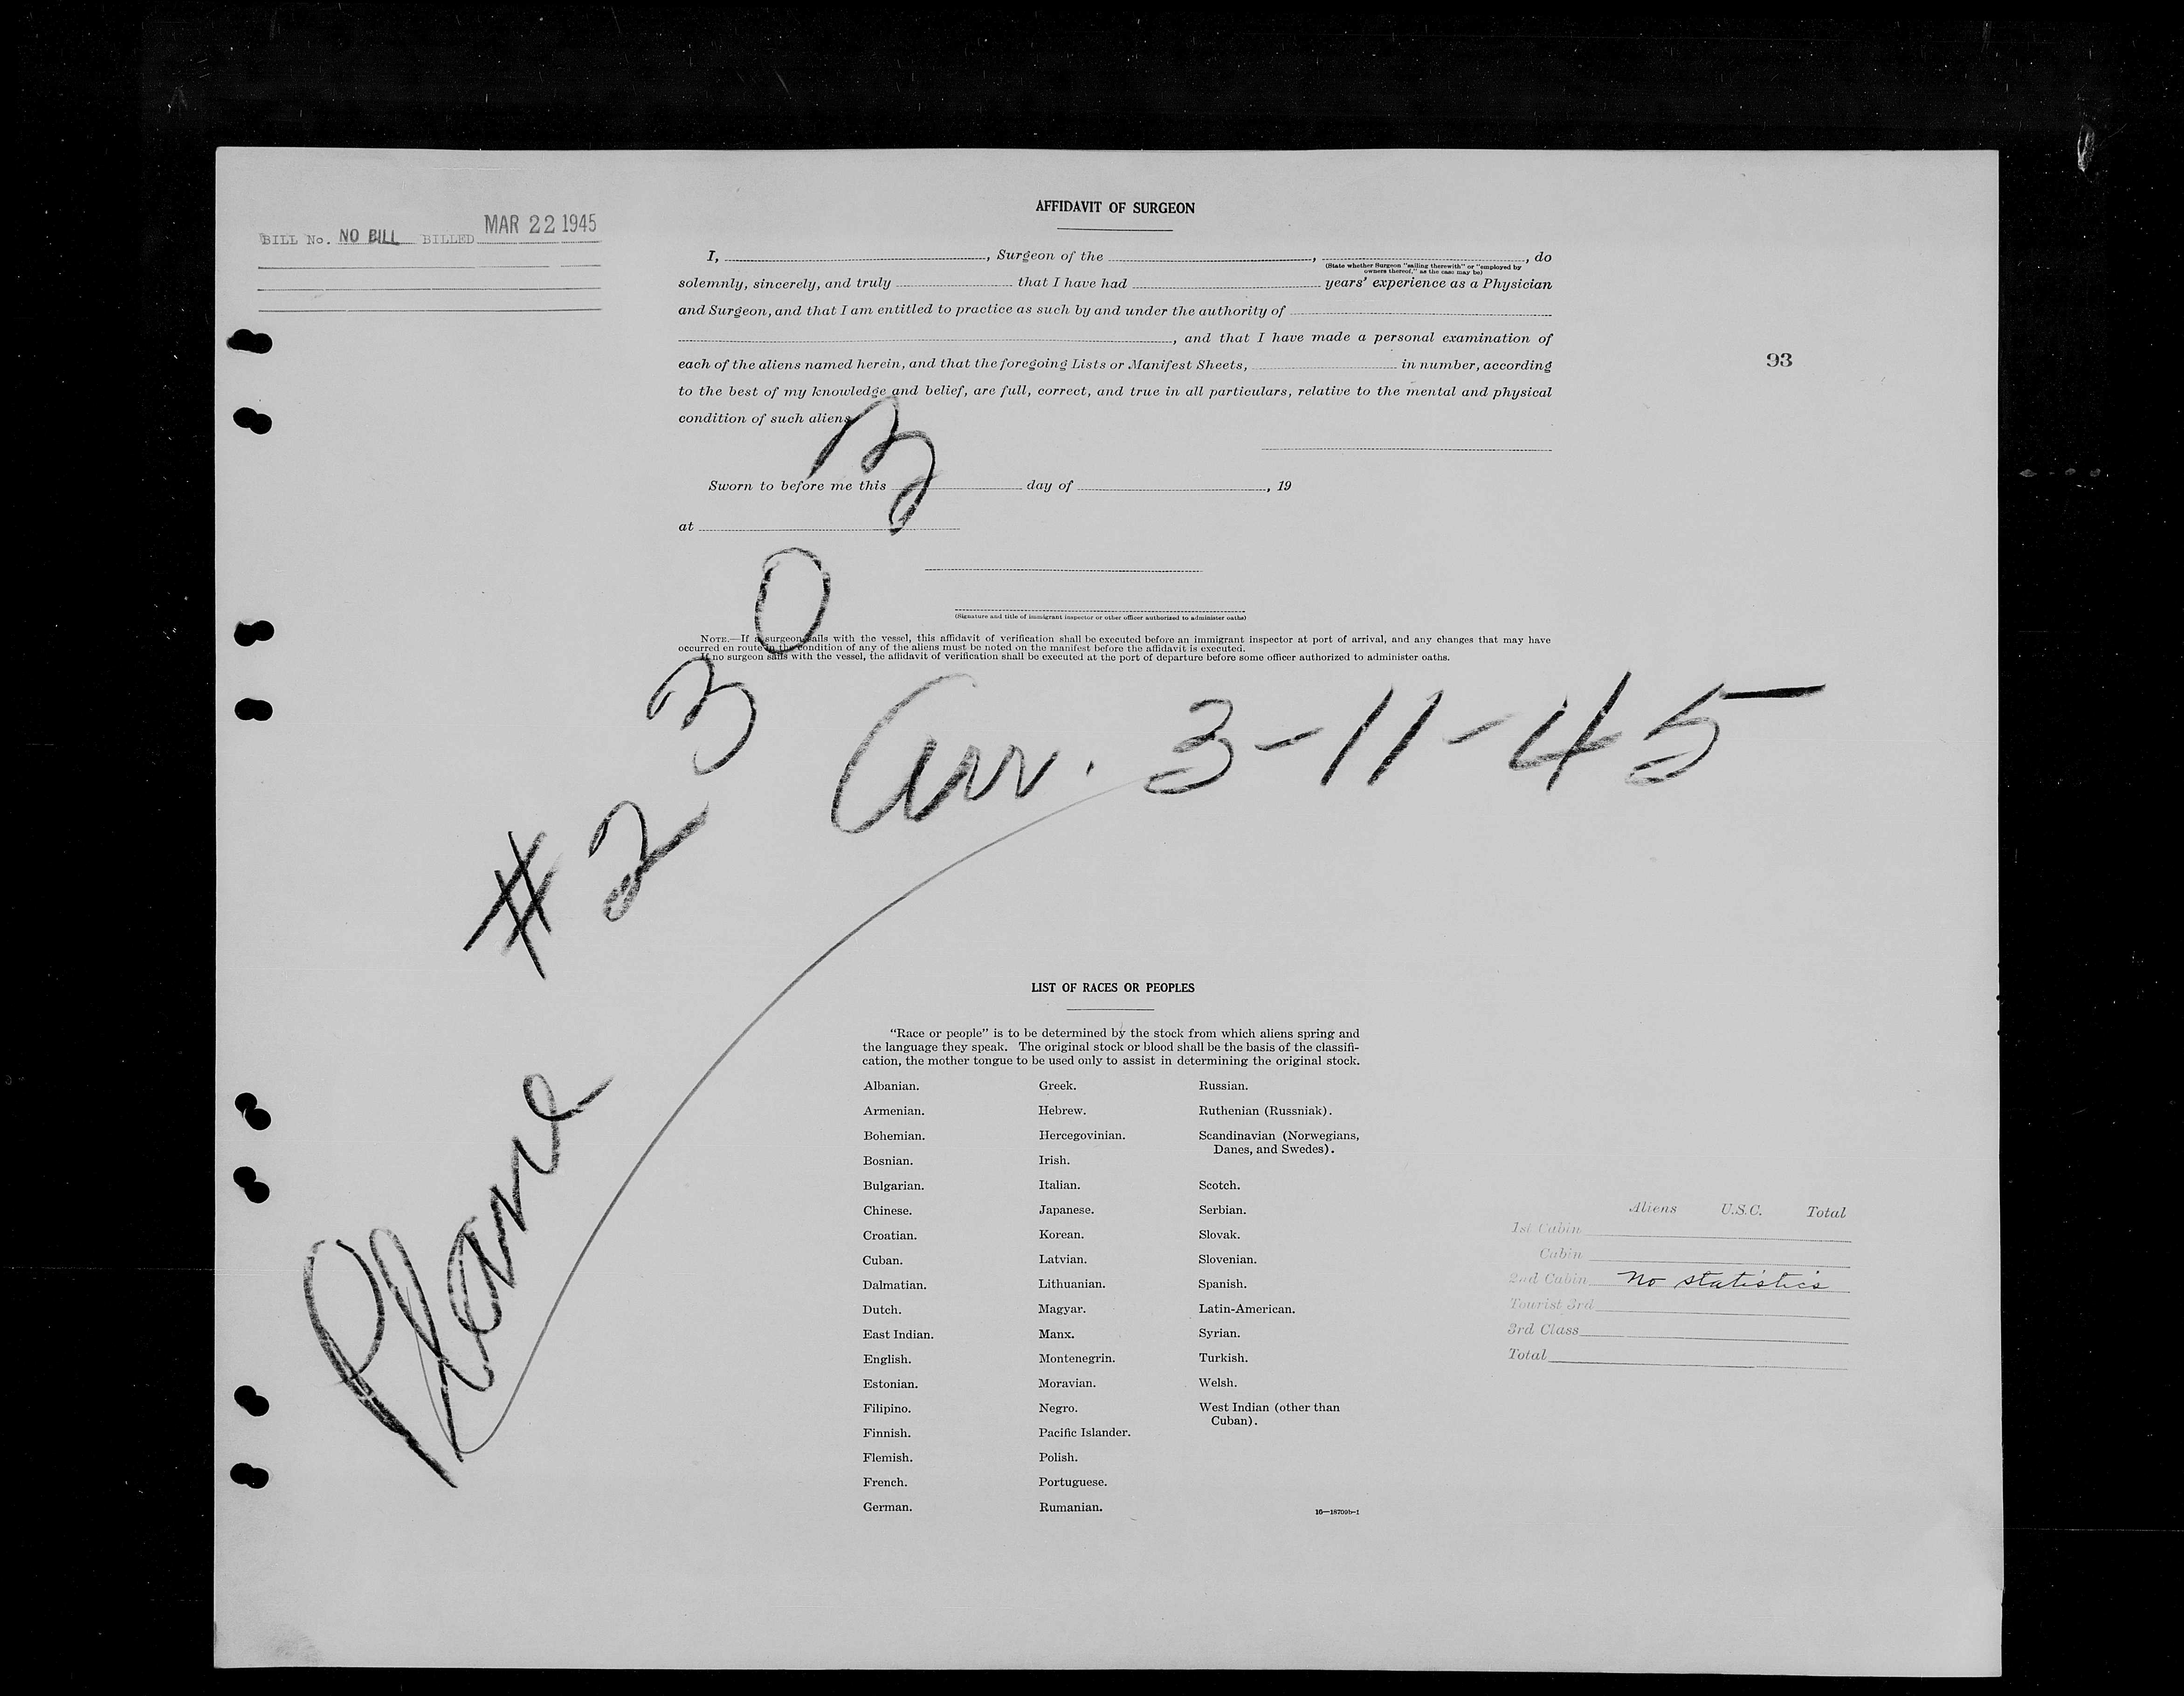 BILL No. NO BILL BILLED MAR 22 1945
AFFIDAVIT OF SURGEON
I, , Surgeon of the , , do
(State whether Surgeon "sailing therewith" or "employed by
owners thereof," as the case may be)
solemnly, sincerely, and truly that I have had years' experience as a Physician
and Surgeon, and that I am entitled to practice as such by and under the authority of
, and that I have made a personal examination of
each of the aliens named herein, and that the foregoing Lists or Manifest Sheets, in number, according
to the best of my knowledge and belief, are full, correct, and true in all particulars, relative to the mental and physical
condition of such aliens
93
Sworn to before me this day of , 19
at
(Signature and title of immigrant inspector or other officer authorized to administer oaths)
NOTE.—If a surgeon sails with the vessel, this affidavit of verification shall be executed before an immigrant inspector at port of arrival, and any changes that may have
occurred en route in the condition of any of the aliens must be noted on the manifest before the affidavit is executed.
If no surgeon sails with the vessel, the affidavit of verification shall be executed at the port of departure before some officer authorized to administer oaths.
Plane #2303
Arr. 3-11-45
LIST OF RACES OR PEOPLES
"Race or people" is to be determined by the stock from which aliens spring and
the language they speak. The original stock or blood shall be the basis of the classifi-
cation, the mother tongue to be used only to assist in determining the original stock.
Albanian.
Armenian.
Bohemian.
Bosnian.
Bulgarian.
Chinese.
Croatian.
Cuban.
Dalmatian.
Dutch.
East Indian.
English.
Estonian.
Filipino.
Finnish.
Flemish.
French.
German.
Greek.
Hebrew.
Hercegovinian.
Irish.
Italian.
Japanese.
Korean.
Latvian.
Lithuanian.
Magyar.
Manx.
Montenegrin.
Moravian.
Negro.
Pacific Islander.
Polish.
Portuguese.
Rumanian.
Russian.
Ruthenian (Russniak).
Scandinavian (Norwegians,
Danes, and Swedes).
Scotch.
Serbian.
Slovak.
Slovenian.
Spanish.
Latin-American.
Syrian.
Turkish.
Welsh.
West Indian (other than
Cuban).
16—18709b-1
Aliens U.S.C. Total
1st Cabin
Cabin
2nd Cabin No statistics
Tourist 3rd
3rd Class
Total